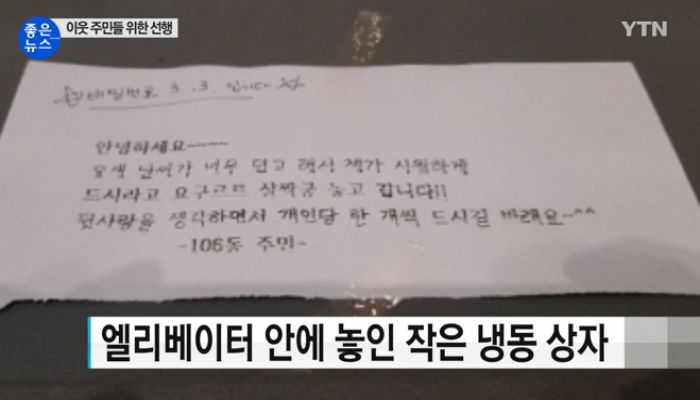 좋은
뉴스
이웃 주민들 위한 선행
YTN
비밀번호 3.3. 입니다
안녕하세요~~~~
요새 날씨가 너무 덥고 해서 제가 시원하게
드시라고 요구르트 살짜쿵 놓고 갑니다!!
뒷사람을 생각하면서 개인당 한 개씩 드시길 바래요~^^
-106동 주민-
엘리베이터 안에 놓인 작은 냉동 상자